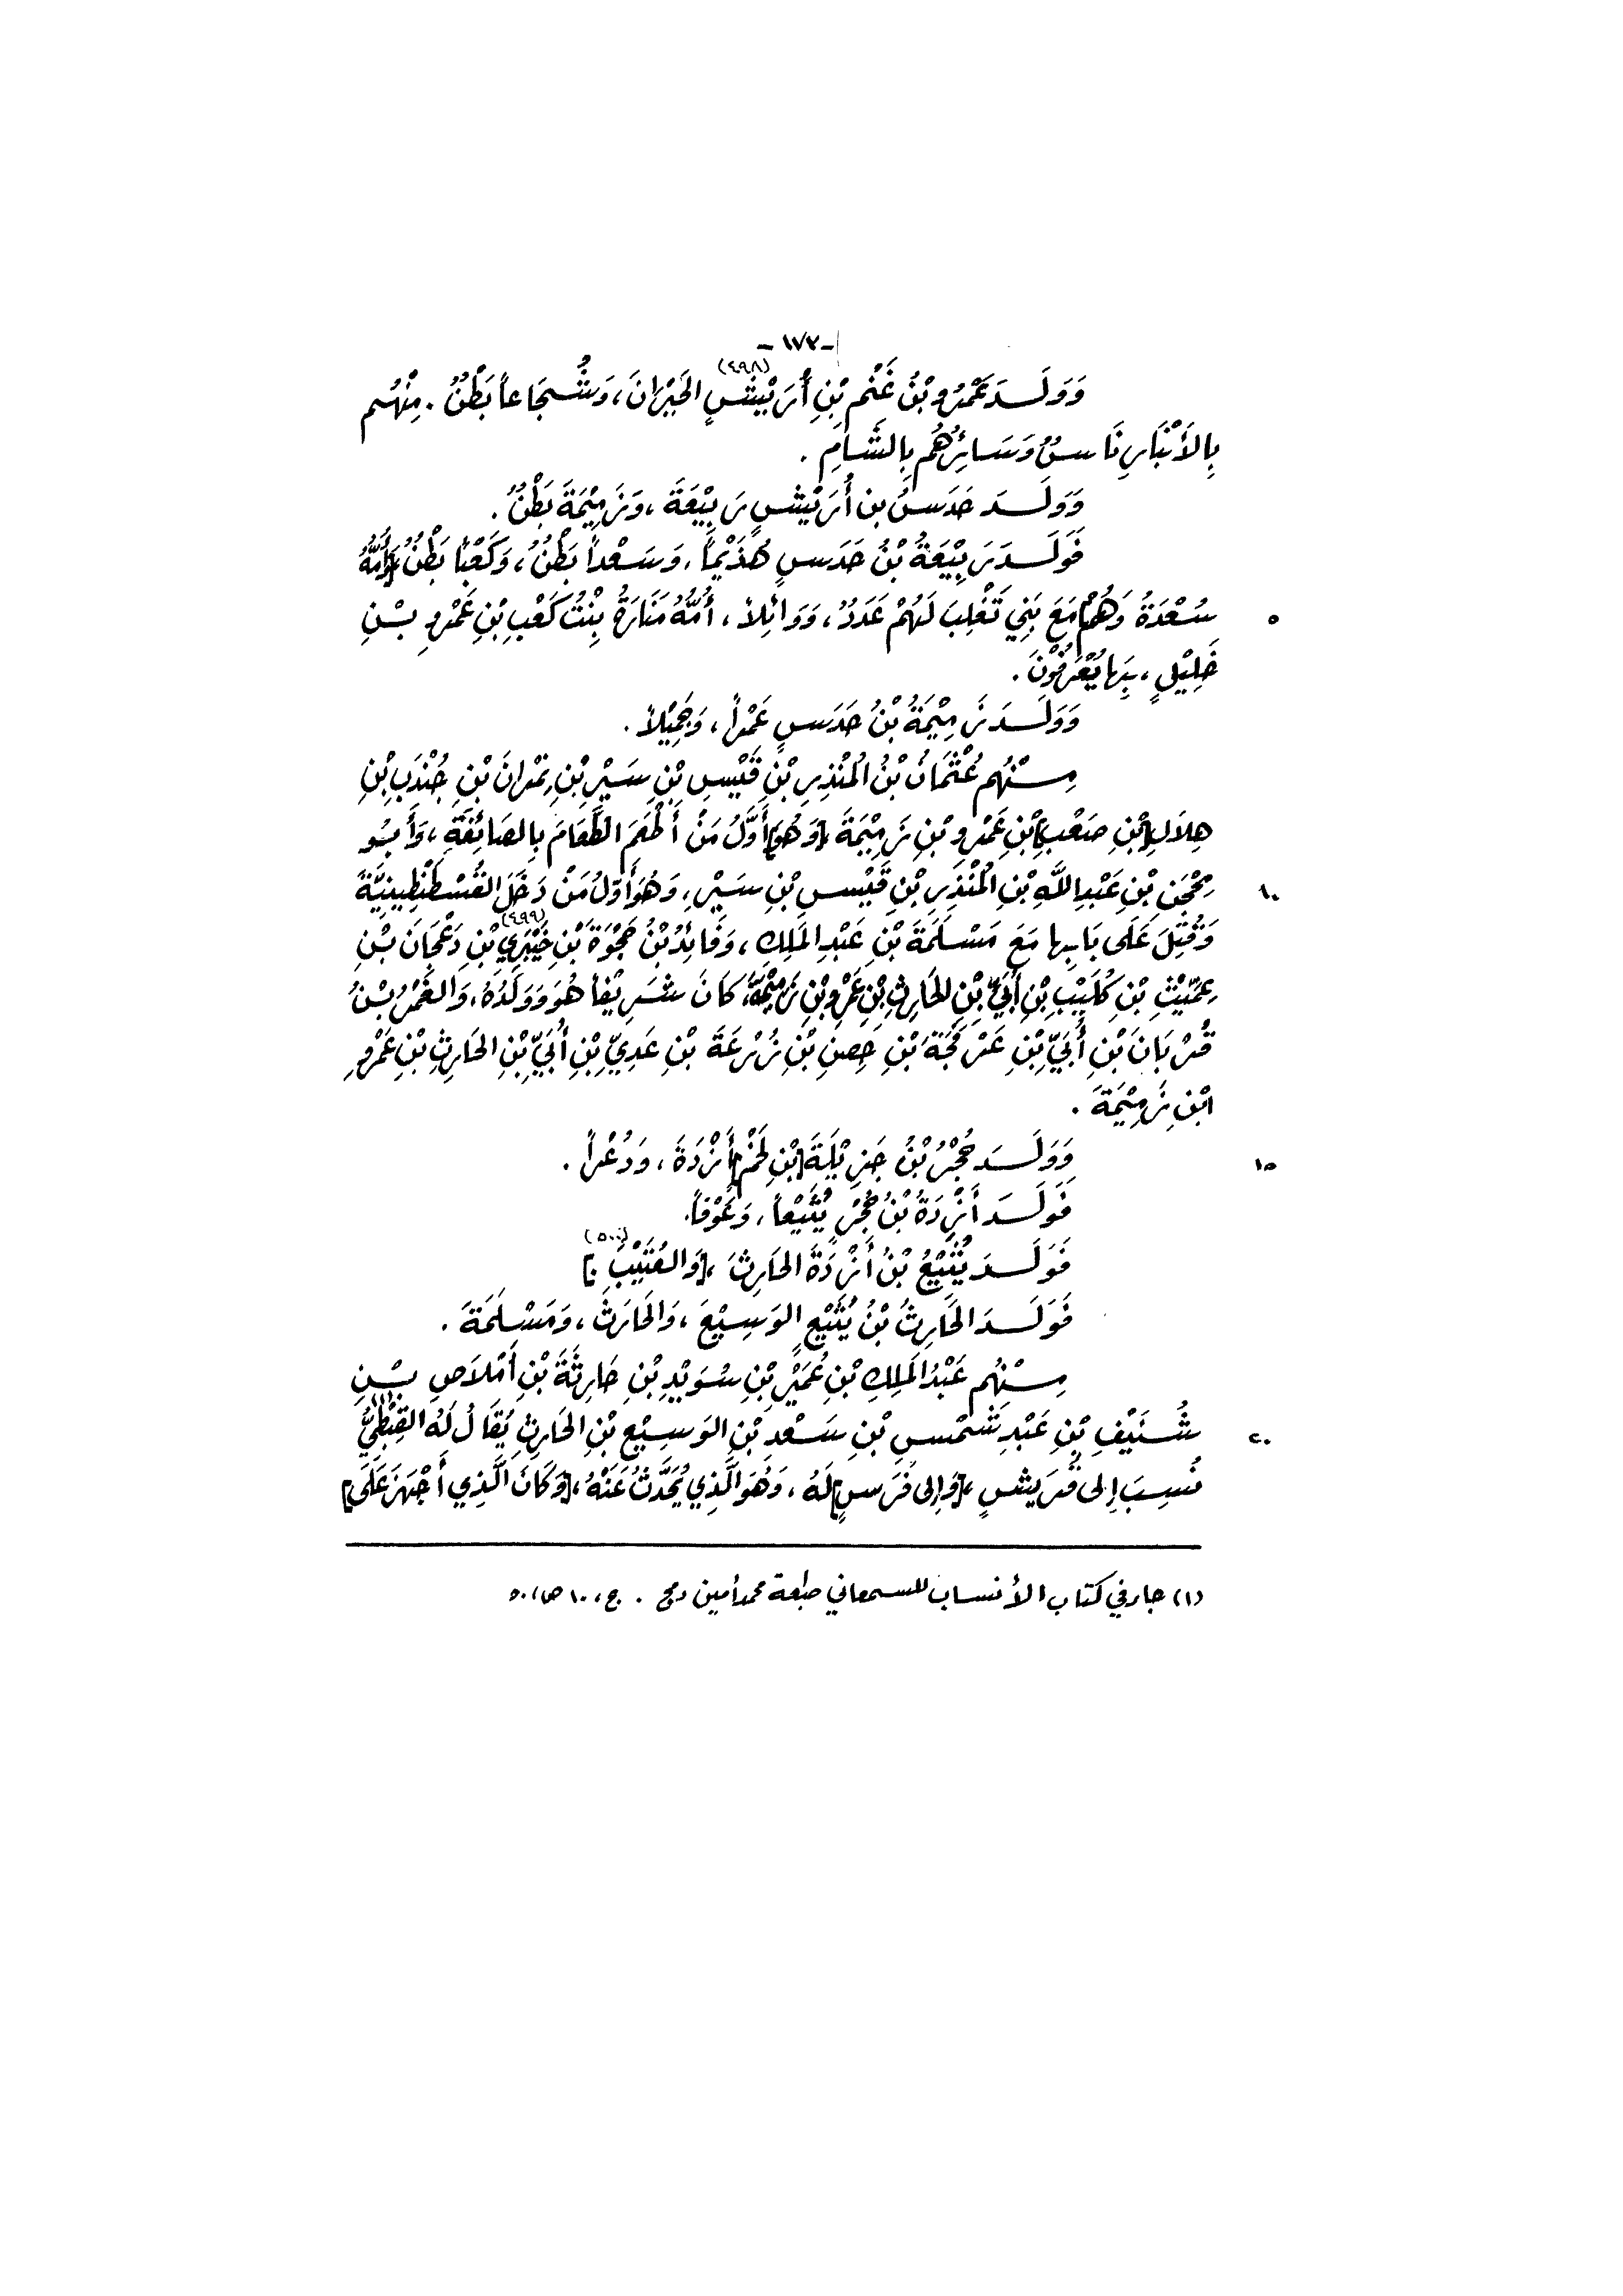 -١٧٢-
وَوَلَـدَ عَمْرُو بْنُ غَنْمِ بْنِ أُرَيْشٍ (٤٩٨) الحَيْرَانَ، وَشُجَاعاً بَطْنٌ. مِنْهُم
بِالأَنْبَارِ نَاسٌ وَسَائِرُهُم بِالشَّامِ.
وَوَلَـدَ حَدَسُ بن أُرَيْشٍ رَبِيْعَةَ، وَزَمِيْمَةَ بَطْنٌ.
فَوَلَـدَ رَبِيْعَةُ بْنُ حَدَسٍ هُذَيْماً، وَسَعْداً بَطْنٌ، وَكَعْباً بَطْنٌ [وَأُمُّهُ
٥ سُعْدَةُ] وَهُمْ مَعَ بَنِي تَغْلِبَ لَهُمْ عَدَدٌ، وَوَائِلاً، أُمُّهُ مَنَارَةُ بِنْتُ كَعْبِ بْنِ عَمْرِو بْنِ
خَلِيْلٍ، بِهَا يُعْرَفُوْنَ.
وَوَلَـدَ زَمِيْمَةُ بْنُ حَدَسٍ عَمْراً، وَجَمِيْلاً.
مِـنْهُم عُثْمَانُ بْنُ المُنْذِرِ بْنِ قَيْسِ بْنِ سَيْرِ بْنِ نِمْرانَ بْنِ جُنْدَبِ بْنِ
هِلَالِ [بْنِ صَعْبِ] بْنِ عَمْرِو بْنِ زَمِيْمَةَ [وَهُوَ] أَوَّلُ مَنْ أَطْعَمَ الطَّعَامَ بِالصَائِفَةِ، وَأَبُو
١٠ مِحْجَنِ بْنِ عَبْدِ اللَّهِ بْنِ المُنْذِرِ بْنِ قَيْسِ بْنِ سَيْرِ، وَهُوَ أَوَّلُ مَنْ دَخَلَ القُسْطَنْطِينِيَّةَ
وَقُتِلَ عَلَى بَابِها مَعَ مَسْلَمَةَ بْنِ عَبْدِ المَلِكِ، وَفَائِدُ بْنُ حَجْوَةَ بْنِ خَيْبَرِيِّ (٤٩٩) بْنِ دَعْجَانَ بْنِ
عِمِّيْتِ بْنِ كُلَيْبِ بْنِ أُبَيِّ بْنِ الحَارِثِ بْنِ عَمْرِو بْنِ زَمِيْمَةَ، كَانَ شَرِيْفاً هُوَ وَوَلَدُهُ، وَالغَمْرُ بْنُ
قُرْبَانَ بْنِ أُبَيِّ بْنِ عَرْفَجَةَ بْنِ حِصْنِ بْنِ زُرْعَةَ بْنِ عَدِيِّ بْنِ أُبَيِّ بْنِ الحَارِثِ بْنِ عَمْرِو
ابْنِ زَمِيْمَةَ.
١٥ وَوَلَـدَ حُجْرُ بْنُ جَزِيْلَةَ [بْنِ لَخْمٍ] أَزْدَةَ، وَدُعْراً.
فَوَلَـدَ أَزْدَةُ بْنُ حُجْرٍ يُثَيْعاً، وَعَوْفاً.
فَوَلَـدَ يُثَيْعُ بْنُ أَزْدَةَ الحَارِثَ، [وَالعُتَيْبَ (٥٠٠).]
فَوَلَـدَ الحَارِثُ بْنُ يُثَيْعٍ الوَسِيْعَ، وَالحَارِثَ، وَمَسْلَمَةَ.
مِـنْهُم عَبْدُ المَلِكِ بْنِ عُمَيْرِ بْنِ سُوَيْدِ بْنِ حَارِثَةَ بْنِ أَمْلَاصِ بْنِ
٢٠ شُنَيْفِ بْنِ عَبْدِ شَمْسِ بْنِ سَعْدِ بْنِ الوَسِيْعِ بْنِ الحَارِثِ يُقَالُ لَهُ القِبْطِيُّ (١)
نُسِبَ إلى قُرَيشٍ، [وَإِلى فَرَسٍ] لَهُ، وَهُوَ الَّذِي يُحَدَّثُ عَنْهُ، [وَكَانَ الَّذِي أَجْهَزَ عَلَى]
(١) جاء في كتاب الأنساب للسمعاني طبعة محمد أمين دمج. ج، ١٠ ص،